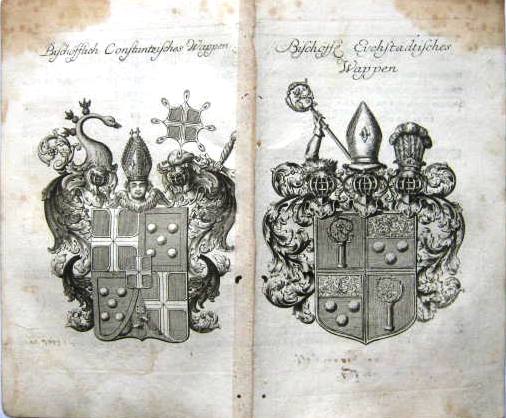 Bischofflich Constantzisches Wappen
Bischoffl. Eychstädtisches
Wappen